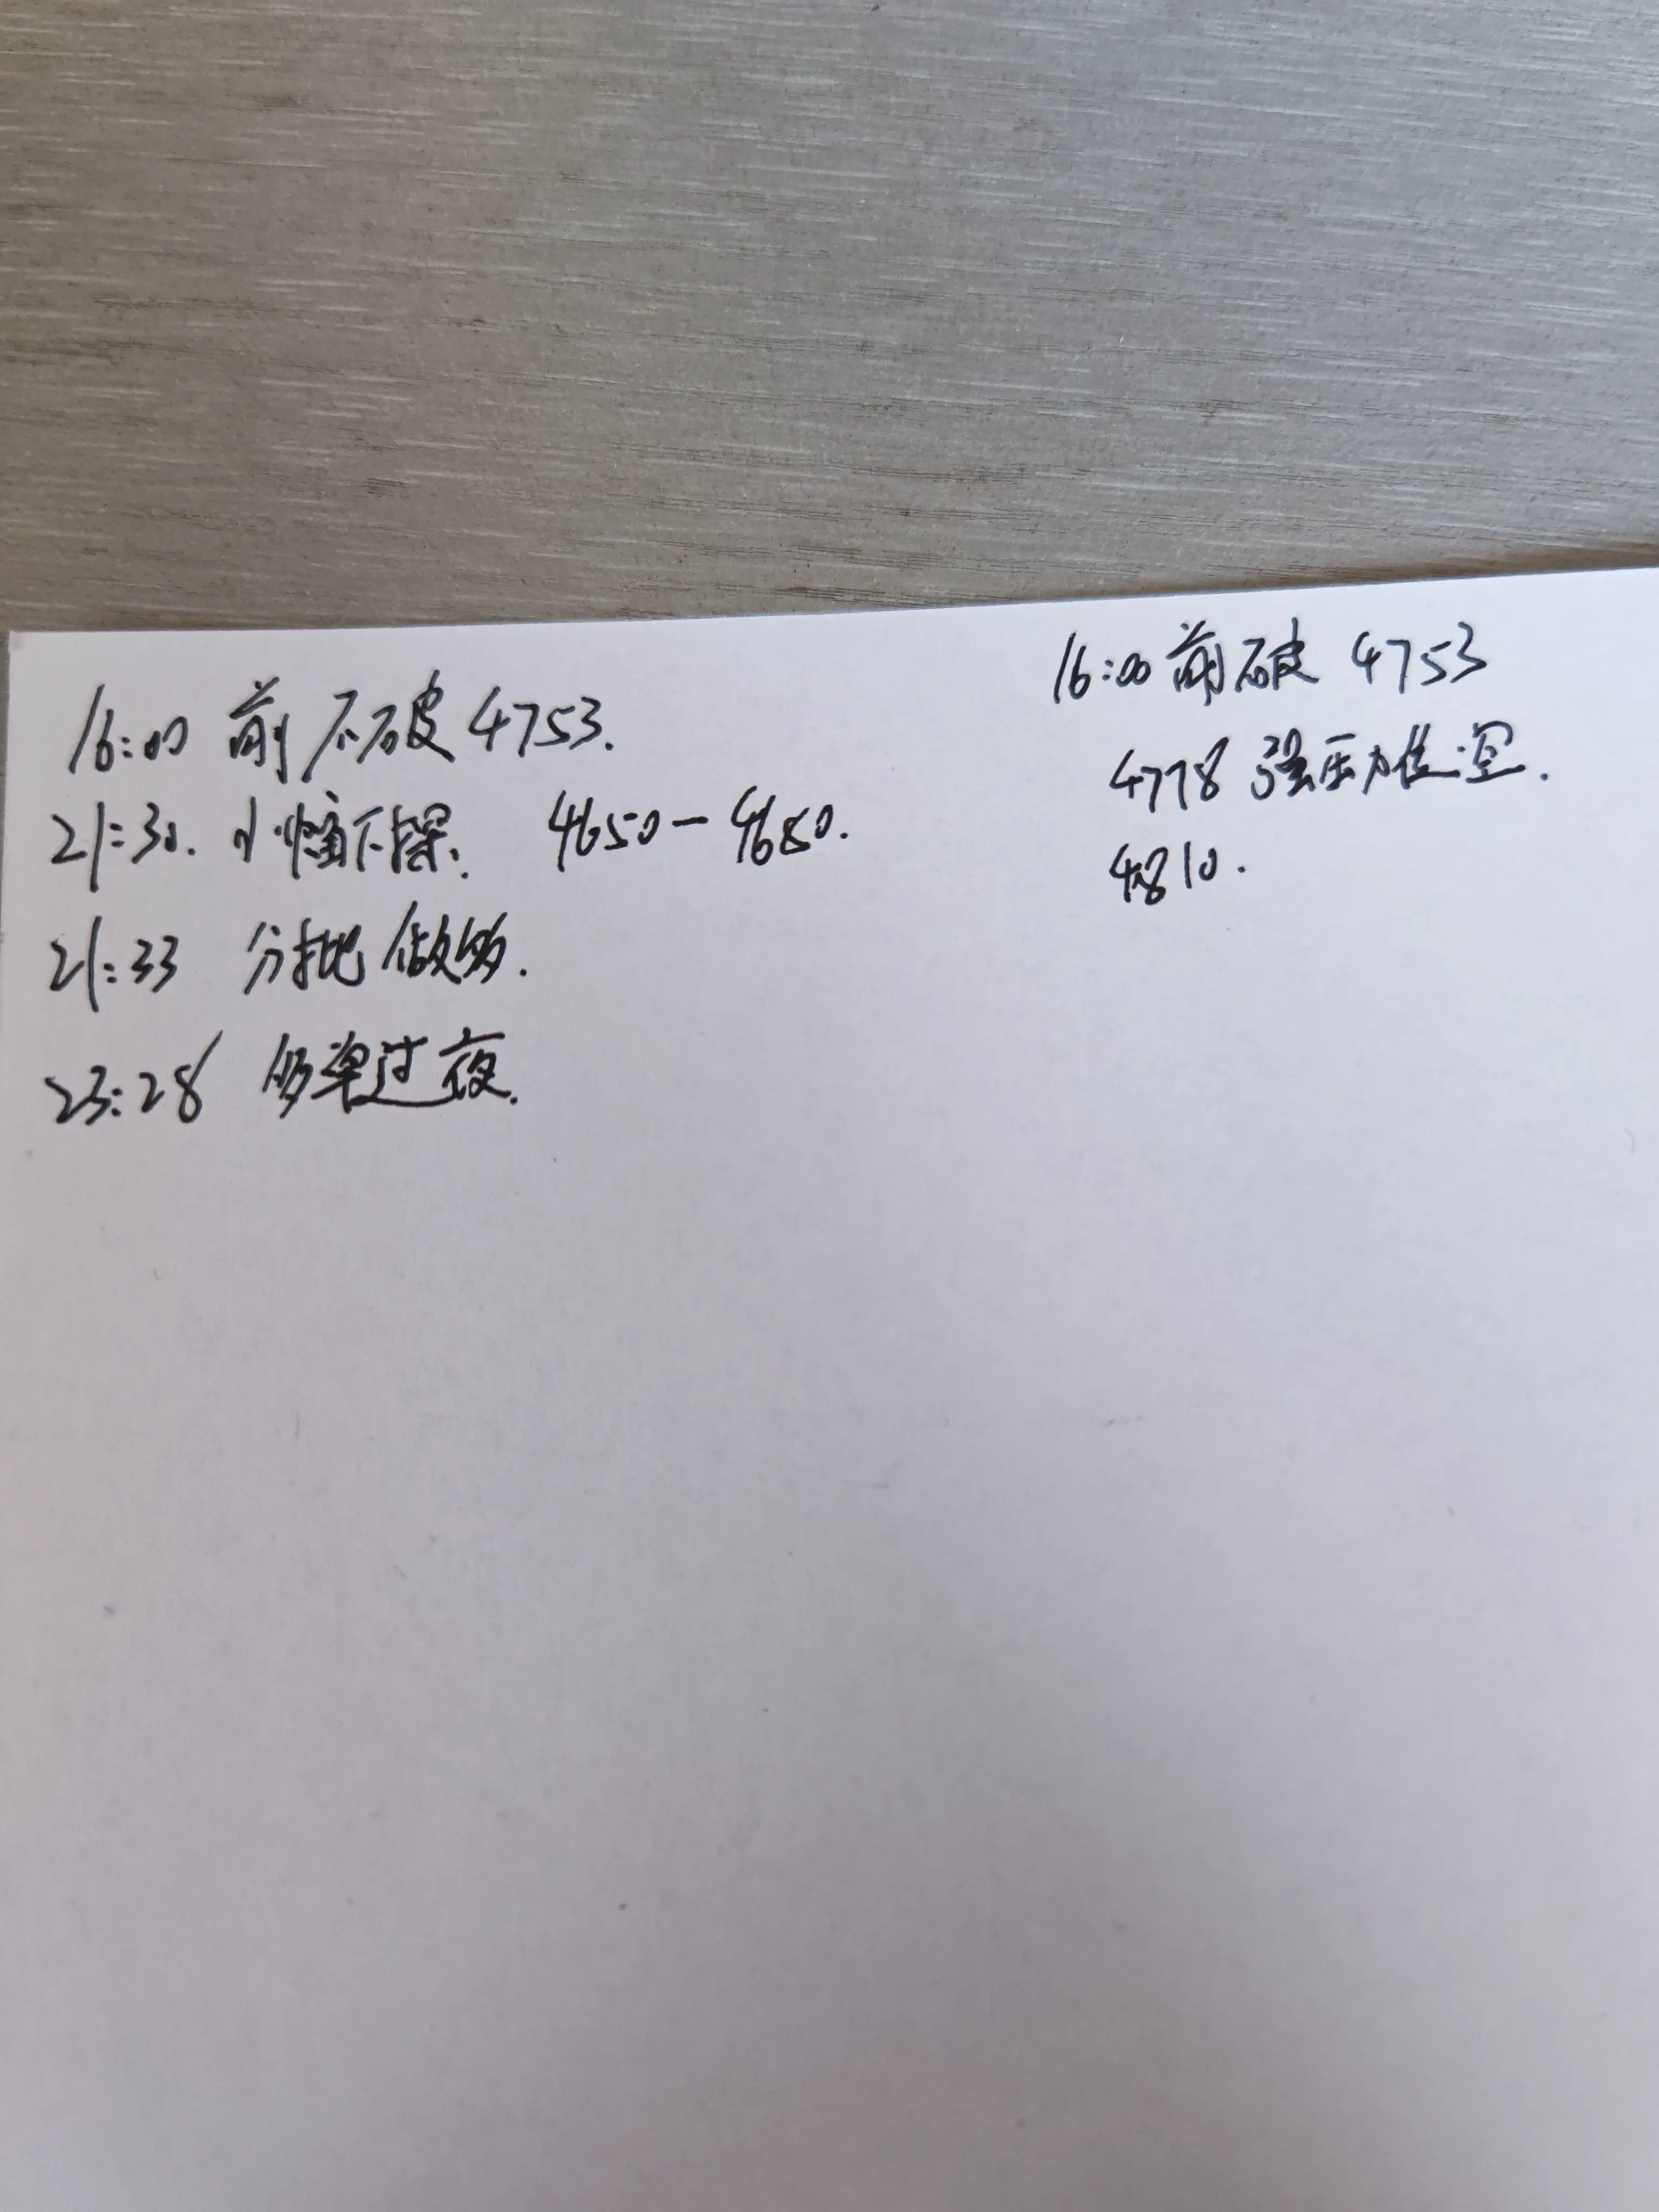 16:00 前不破 4753.
21:30. 小幅下探. 4650-4680.
21:33 分批做多.
23:28 多单过夜.
16:00前破 4753
4778 强压力位空.
4810.